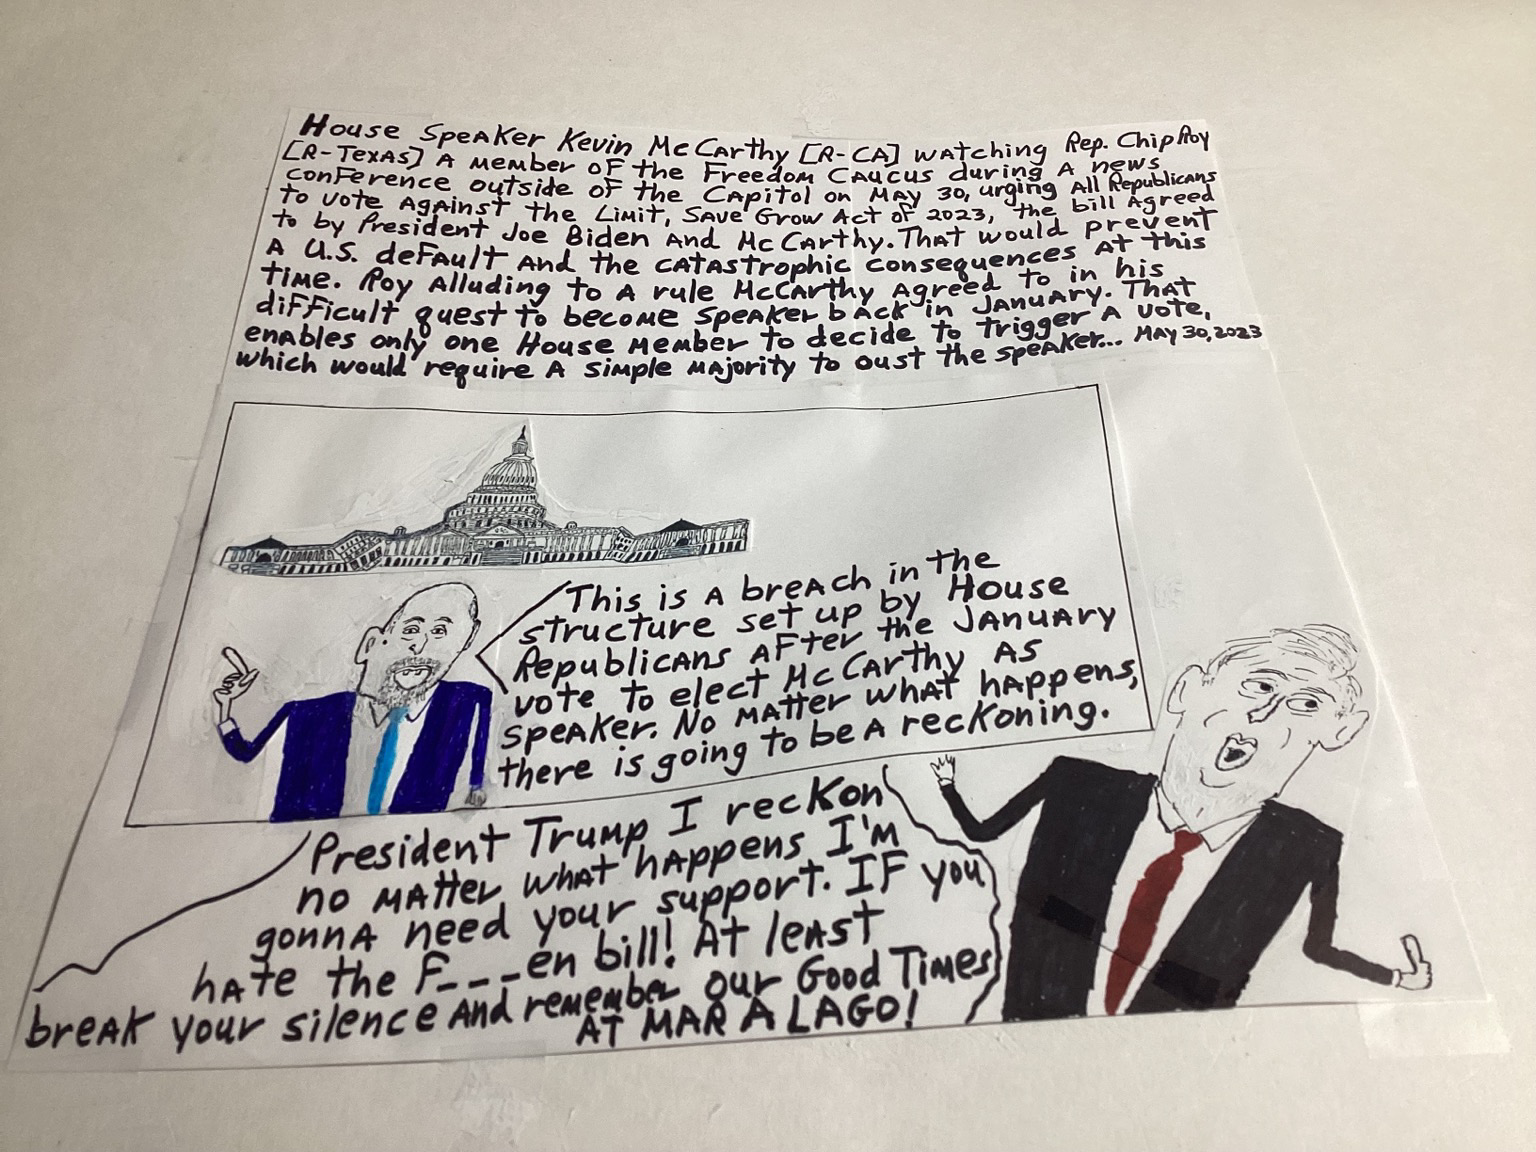 House Speaker Kevin McCarthy [R-CA] watching Rep. Chip Roy
[R-Texas] A member of the Freedom Caucus during A news
conference outside of the Capitol on May 30, urging All Republicans
to vote against the Limit, Save Grow Act of 2023, the bill Agreed
to by President Joe Biden and McCarthy. That would prevent
A U.S. default and the catastrophic consequences at this
time. Roy Alluding to A rule McCarthy Agreed to in his
difficult quest to become speaker back in January. That
enables only one House member to decide to trigger A vote,
which would require A simple majority to oust the speaker... May 30, 2023
This is A breach in the
structure set up by House
Republicans After the January
vote to elect McCarthy As
speaker. No matter what happens,
there is going to be A reckoning.
President Trump I reckon
no matter what happens I'm
gonna need your support. If you
hate the F---en bill! At least
break your silence And remember our Good Times
AT MAR A LAGO!